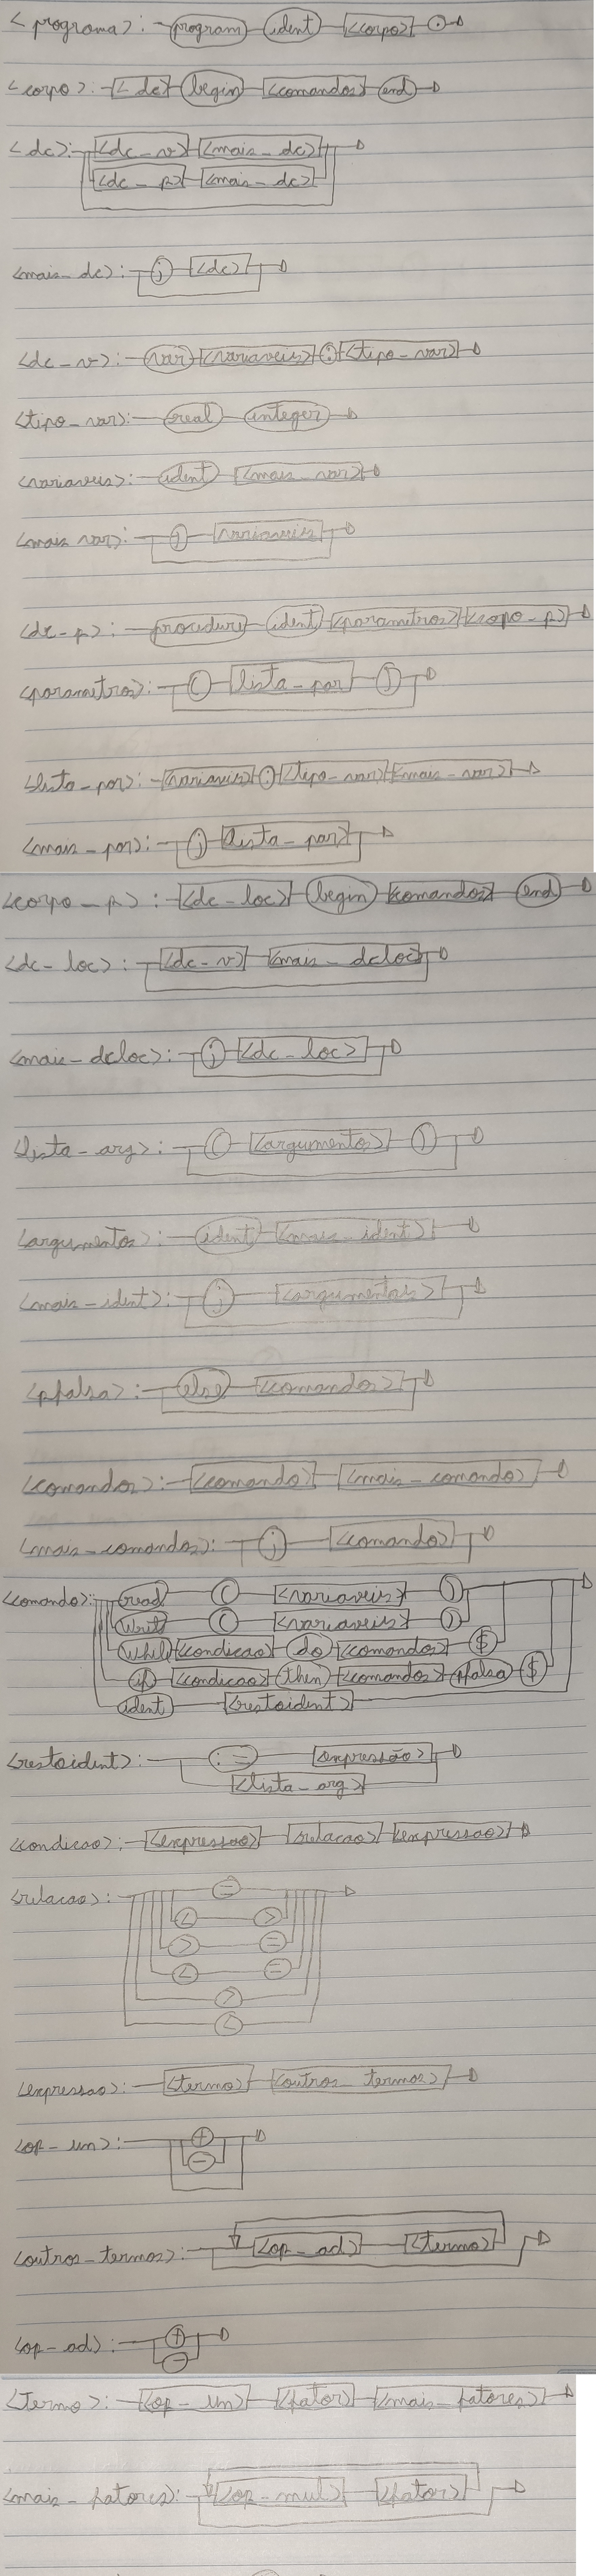 <programa>: program ident <corpo> .
<corpo>: <dc> begin <comandos> end
<dc>: <dc_v> <mais_dc>
<dc_p> <mais_dc>
<mais_dc>: ; <dc>
<dc_v>: var <variaveis> : <tipo_var>
<tipo_var>: real integer
<variaveis>: ident <mais_var>
<mais var>: , <variaveis>
<dc_p>: procedure ident <parametros> <copo_p>
<parametros>: ( lista_par> )
<lista_par>: <variaveis> : <tipo_var> <mais_var>
<mais_par>: ; <lista_par>
<corpo_p>: <dc_loc> begin <comandos> end
<dc_loc>: <dc_v> <mais_dcloc>
<mais_dcloc>: ; <dc_loc>
<lista_arg>: ( <argumentos> )
<argumentos>: ident <mais_ident>
<mais_ident>: ; <argumentos>
<pfalsa>: else <comandos>
<comandos>: <comando> <mais_comando>
<mais_comandos>: ; <comandos>
<comando>: read ( <variaveis> )
write ( <variaveis> )
while <condicao> do <comandos> $
if <condicao> then <comandos> pfalsa $
ident <restoident>
<restoident>: := <expressão>
<lista_arg>
<condicao>: <expressao> <relacao> <expressao>
<relacao>: =
< >
> =
< =
>
<
<expressao>: <termo> <outros_termos>
<op_un>: +
-
<outros_termos>: <op_ad> <termo>
<op_ad>: +
-
<termo>: <op_un> <fator> <mais_fatores>
<mais_fatores>: <op_mul> <fator>